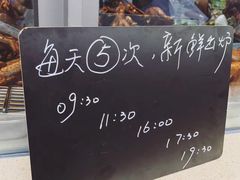 每天⑤次，新鲜出炉
09:30
11:30
16:00
17:30
19:30